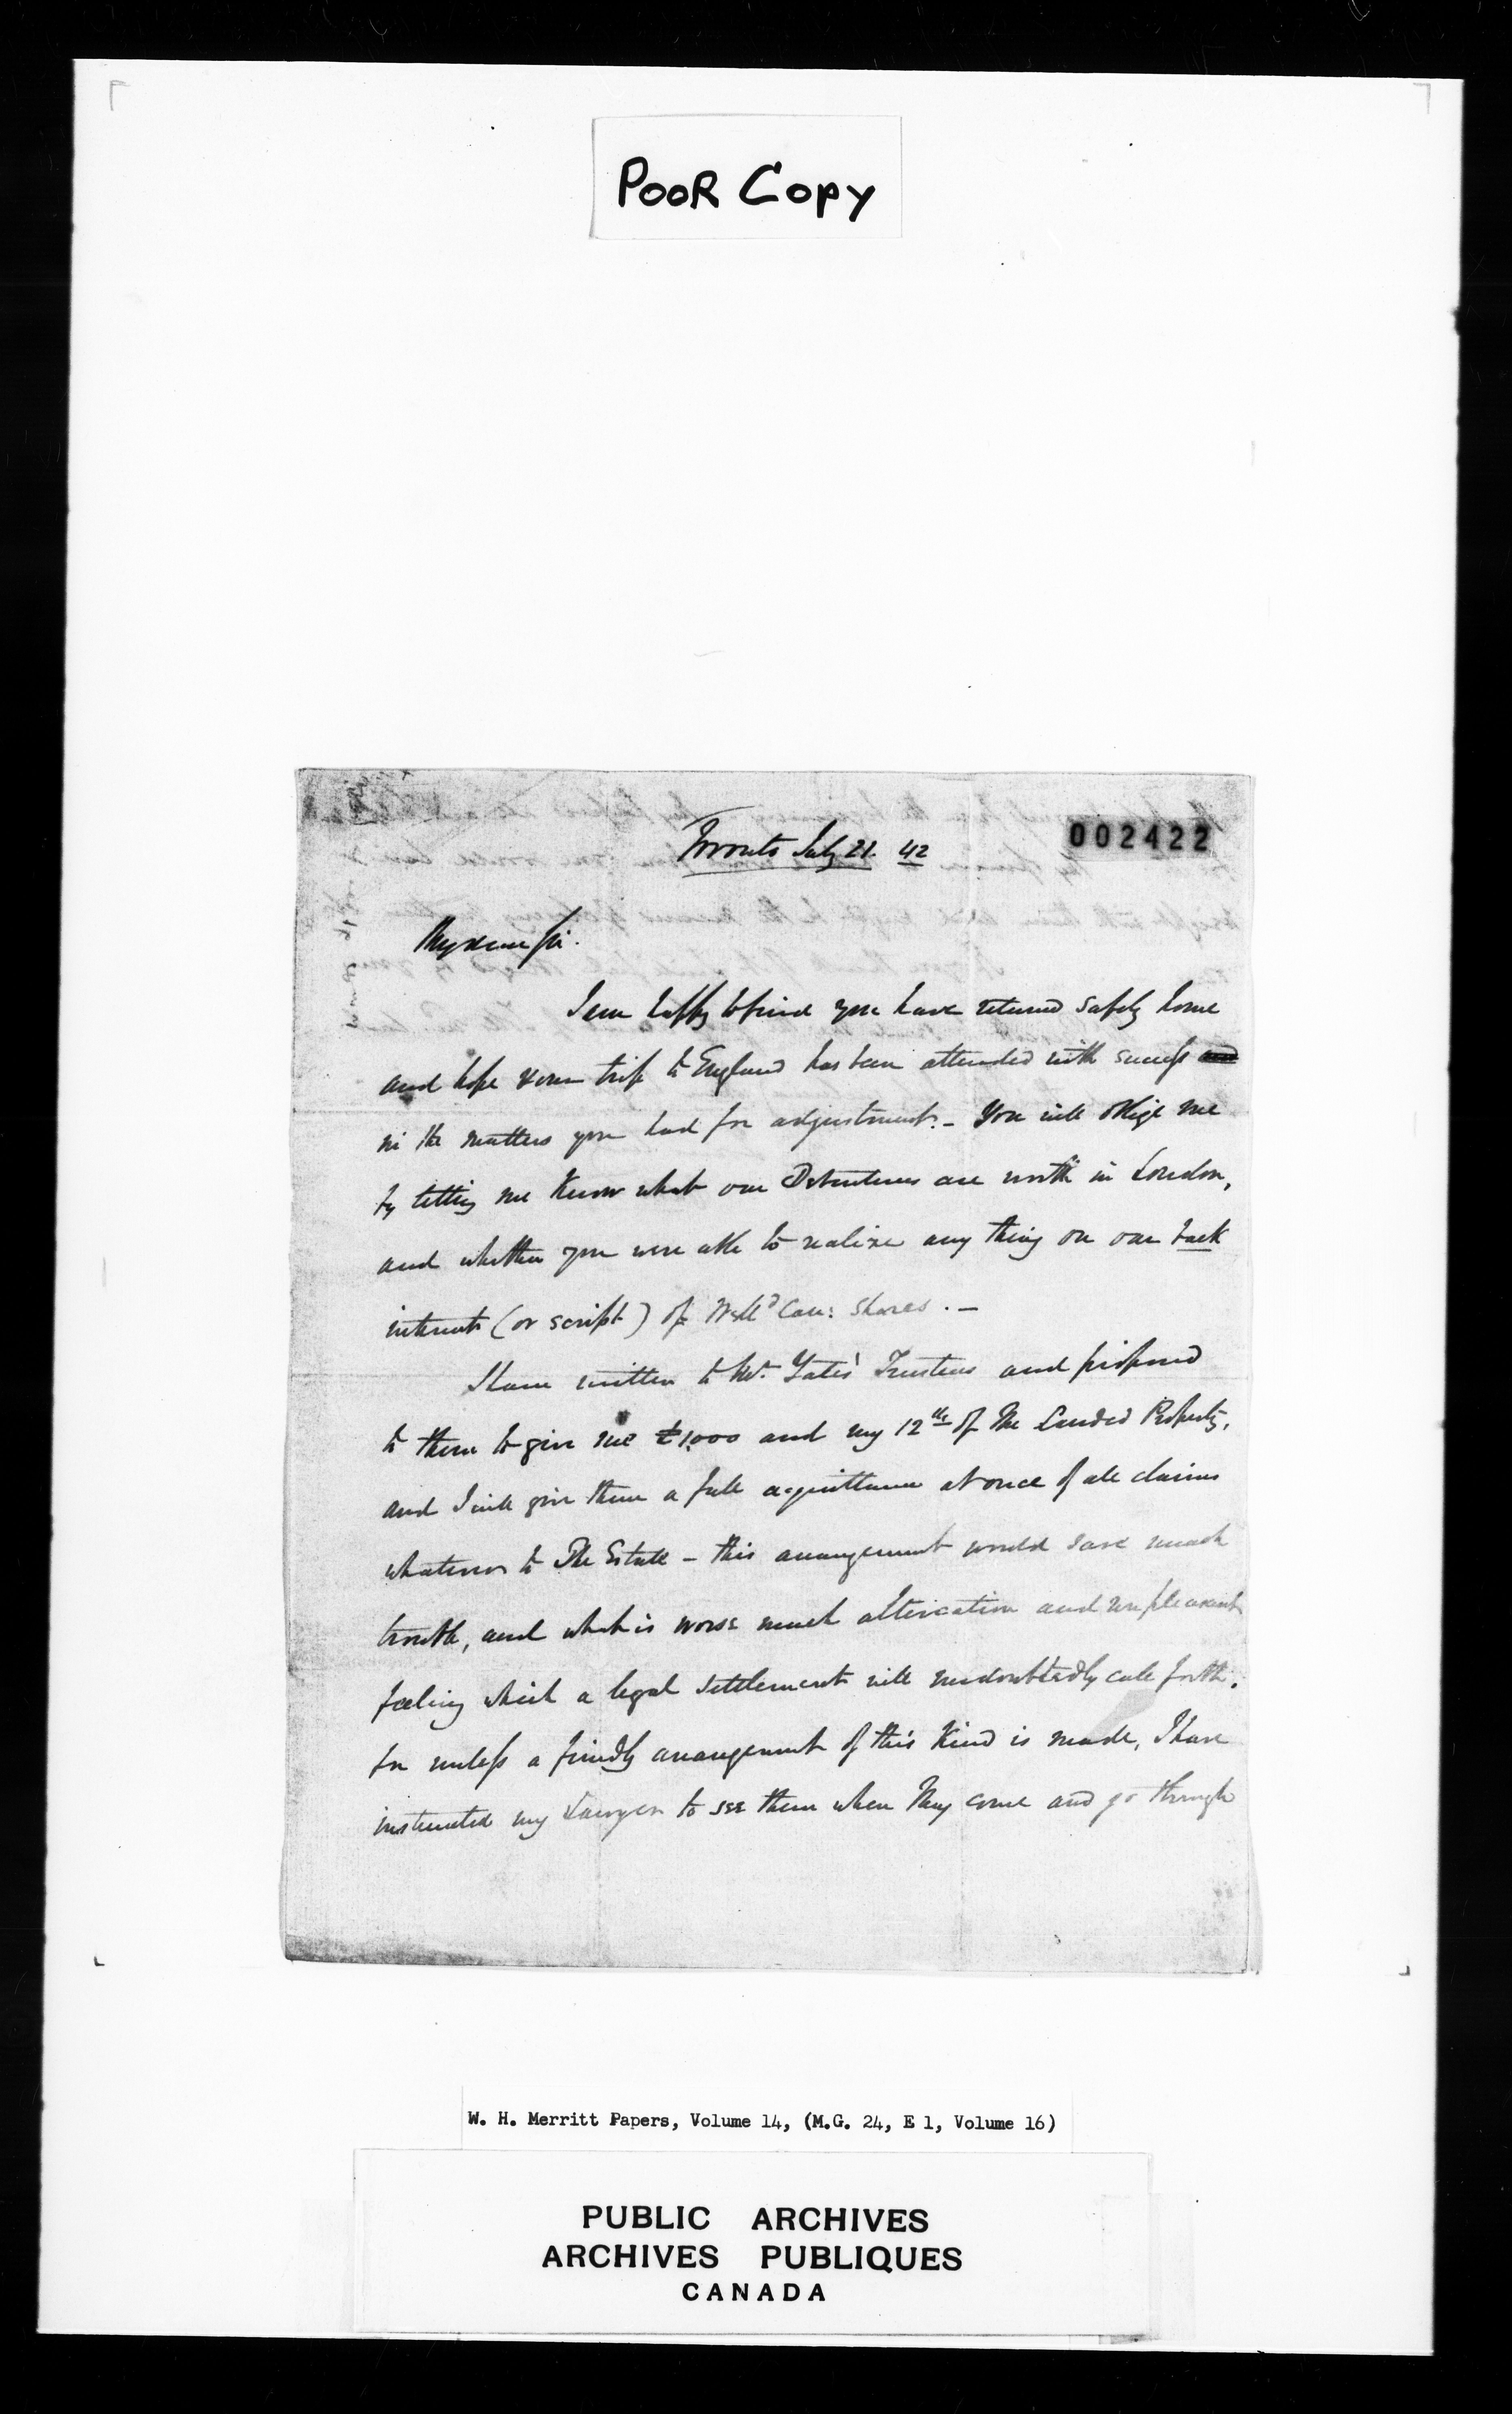 POOR COPY
Toronto July 21. 42
002422
My dear Sir.
I am happy to find you have returned safely home
and hope your trip to England has been attended with success and
in the matters you had for adjustment. - You will oblige me
by letting me know what our Debentures are worth in London,
and whether you were able to realize any thing on our back
interest (or script) of Welld Can: Shares. -
I have written to Mr. Yates' Trustees and proposed
to them to give me £1,000 and my 12th of the Landed Property,
and I will give them a full acquittance at once of all claims
whatever to the Estate - this arrangement would save much
trouble, and what is worse much altercation and unpleasant
feeling which a legal settlement will undoubtedly call forth.
for unless a friendly arrangement of this kind is made, I have
instructed my Lawyer to see them when they come and go through
W. H. Merritt Papers, Volume 14, (M.G. 24, E 1, Volume 16)
PUBLIC ARCHIVES
ARCHIVES PUBLIQUES
CANADA